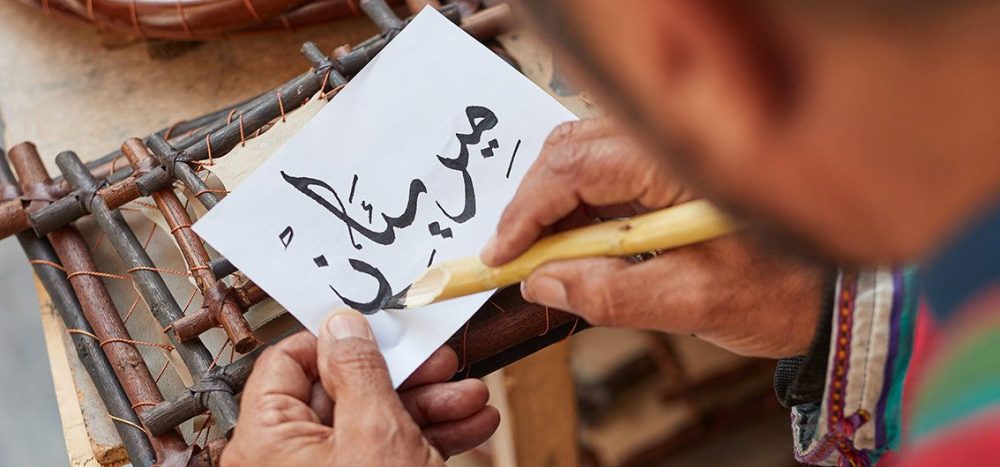 مِيرِيتَانْ